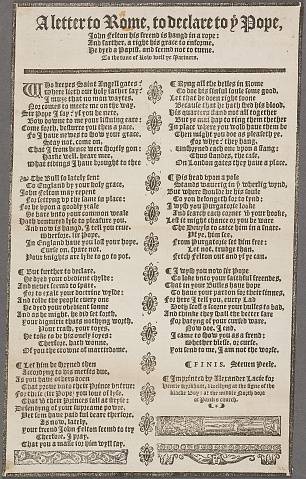 A letter to Rome, to declare to yͤ Pope,
John Felton his freend is hangd in a rope:
And farther, a right his grace to enforme,
He dyed a Papist, and seemd not to turne.
To the tune of Row well ye Mariners.
WHo keepes Saint Angell gates?
Where lieth our holy father say?
I muze that no man waytes,
Nor comes to meete me on the way.
Sir Pope I say? yf you be nere,
Bow downe to me your listning eare:
Come forth, besturre you then a pace,
For I haue newes to show your grace.
Stay not, come on,
That I from hence were shortly gon:
Harke well, heare mee,
What tidings I haue brought to thee
The Bull so lately sent
To England by your holy grace,
John Felton may repent
For settyng vp the same in place:
For he vpon a goodly zeale
He bare vnto your common weale
Hath ventured lyfe to pleasure you,
And now is hangd, I tell you true.
Wherfore, sir Pope,
In England haue you lost your hope.
Curse on, spare not,
Your knights are lyke to go to pot.
But further to declare,
He dyed your obedient chylde:
And neuer seemd to spare,
For to exalt your doctrine wylde:
And tolde the people euery one
He dyed your obedient sonne
And as he might, he did set forth,
Your dignitie thats nothyng worth,
Your trash, your toyes,
He toke to be his onely ioyes:
Therfore, hath wonne,
Of you the crowne of martirdome.
Let him be shryned then
According to his merites due,
As you haue others doen
That proue vnto their Prince vntrue:
For those (sir Pope) you loue of lyfe,
That with their Princes fall at stryfe:
Defendyng of your supreame powre,
Yet som haue paid ful deare therfore.
As now, lately,
Your freend John Felton seemd to try
Therfore, I pray,
That you a masse for him wyll say.
RYng all the belles in Rome
To doe his sinful soule some good,
Let that be doen right soone
Because that he hath shed his blood,
His quarters stand not all together
But ye mai hap to ring them thether
In place where you wold haue them be
Then might you doe as pleaseth ye.
For whye? they hang,
Unshryned each one vpon a stang:
Thus standes, the case,
On London gates they haue a place.
His head vpon a pole
Stands wauering in yͤ wherling wynd,
But where shoulde be his soule
To you belongeth for to fynd:
I wysh you Purgatorie looke
And search each corner wᵗ your hooke,
Lest it might chance or you be ware
The Deuyls to catch him in a snare.
Yf ye, him see,
From Purgatorie set him free:
Let not, trudge than,
Fetch Felton out and yf ye can.
I wysh you now sir Pope
To loke vnto your faithful freendes,
That in your Bulles haue hope
To haue your pardon for their sinnes,
For here I tell you, euery Lad
Doth scoff & scorne your bulles to bad,
And thinke they shall the better fare
For hatyng of your cursed ware.
Now doe, I end,
I came to show you as a frend:
Whether blesse, or curse,
You send to me, I am not the worse.
FINIS. Steuen Peele.
Imprinted by Alexander Lacie for
Henrie Kyrkham, dwellyng at the signe of the
blacke Boy: at the middle North dore
of Paules church.